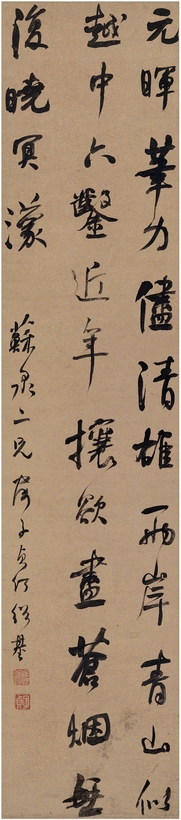 元暉筆力儘清雄兩岸青山似
越中六鑿近年攘欲盡蒼烟無
復曉冥濛
蘇泉二兄 子貞何紹基